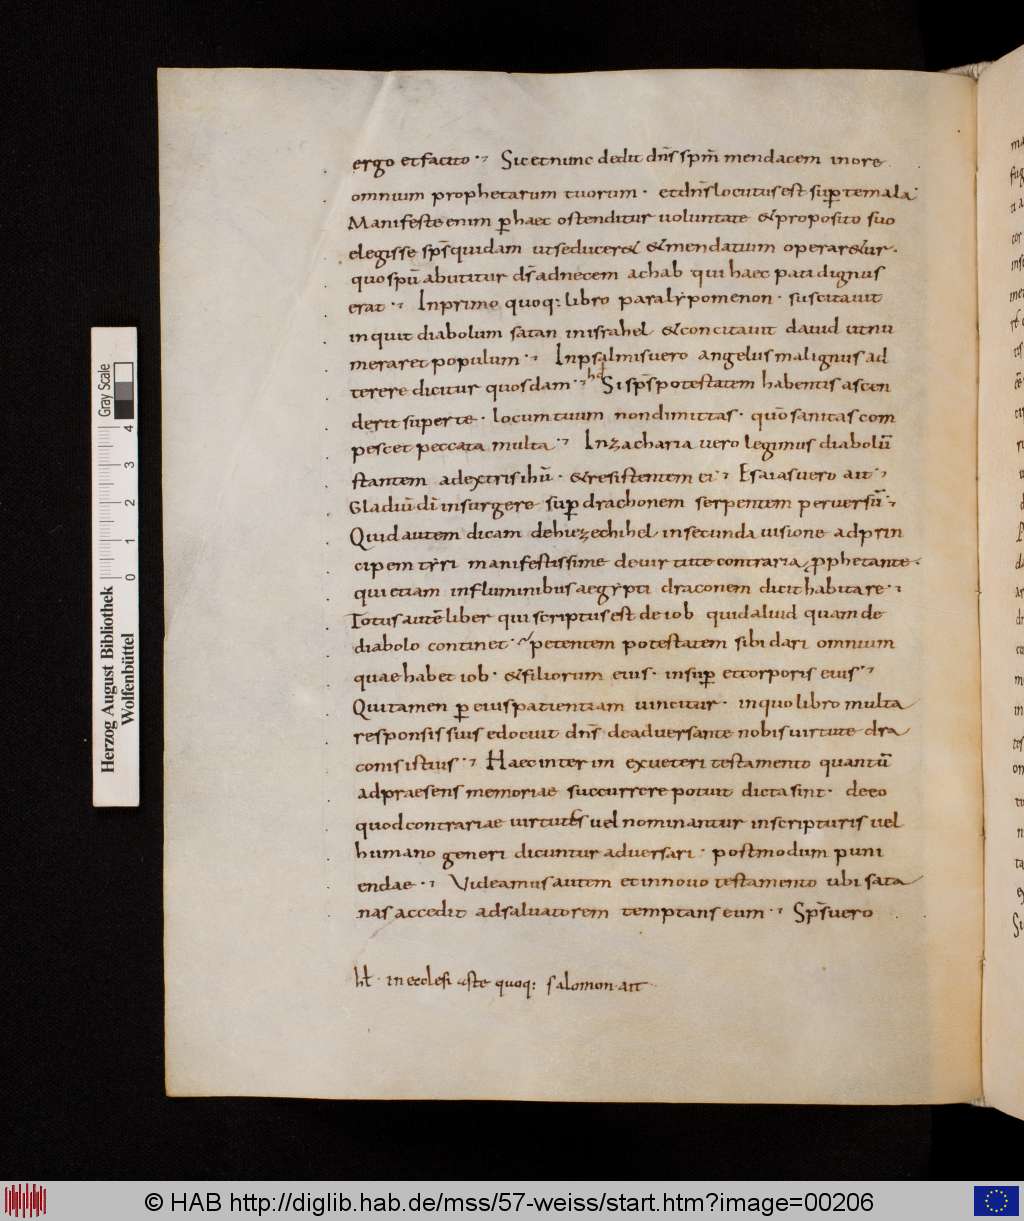 ergo et facito · Sic et nunc dedit dn̄s spm̄ mendacem in ore
omnium prophetarum tuorum · et dn̄s locutus est sup̄ te mala
Manifeste enim p̱ haec ostenditur uoluntate & proposito suo
elegisse sp̄s quidam ut seducer& & mendatium operar&ur ·
quo spū abutitur dn̄s ad necem achab qui haec pati dignus
erat · In primo quoq: libro paralypomenon · suscitauit
inquit diabolum satan in israhel & concitauit dauid ut nu
meraret populum · In psalmis uero angelus malignus ad
terere dicitur quosdam · hd Si sp̄s potestatem habentis ascen
derit super te · locum tuum non dimittas · quō sanitas com
pescet peccata multa · In zacharia uero legimus diabolū
stantem ad extris ihū · & resistentem ei · Esaias uero ait
Gladiū dī insurgere sup̄ drachonem serpentem peruersū ·
Quid autem dicam de hiezechihel in secunda uisione ad prin
cipem tyri manifestissime de uirtute contraria p̱phetante ·
qui etiam in fluminibus aegypti draconem dicit habitare ·
Totus autē liber qui scriptus est de iob quid aliud quam de
diabolo continet · petentem potestatem sibi dari omnium
quae habet iob · & filiorum eius · insup̄ et corporis eius
Qui tamen p̱ eius patientiam uincitur · in quo libro multa
responsis suis edocuit dn̄s de aduersante nobis uirtute dra
conis istius · Haec interim ex ueteri testamento quantū
ad praesens memoriae succurrere potuit dicta sint · de eo
quod contrariae uirtutes uel nominantur in scripturis uel
humano generi dicuntur aduersari · postmodum puni
endae · Uideamus autem et in nouo testamento ubi sata
nas accedit ad saluatorem temptans eum · Sp̄s uero
hł · in ecclesiaste quoq: salomon ait
Gray Scale
Herzog August Bibliothek
Wolfenbüttel
0 1 2 3 4
© HAB http://diglib.hab.de/mss/57-weiss/start.htm?image=00206